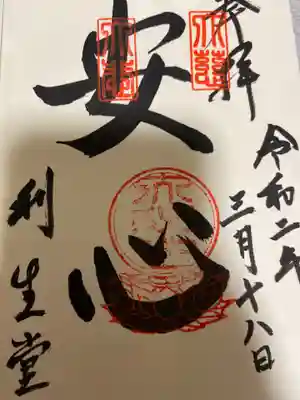 奉拝
令和二年
三月十八日
安心
利生堂